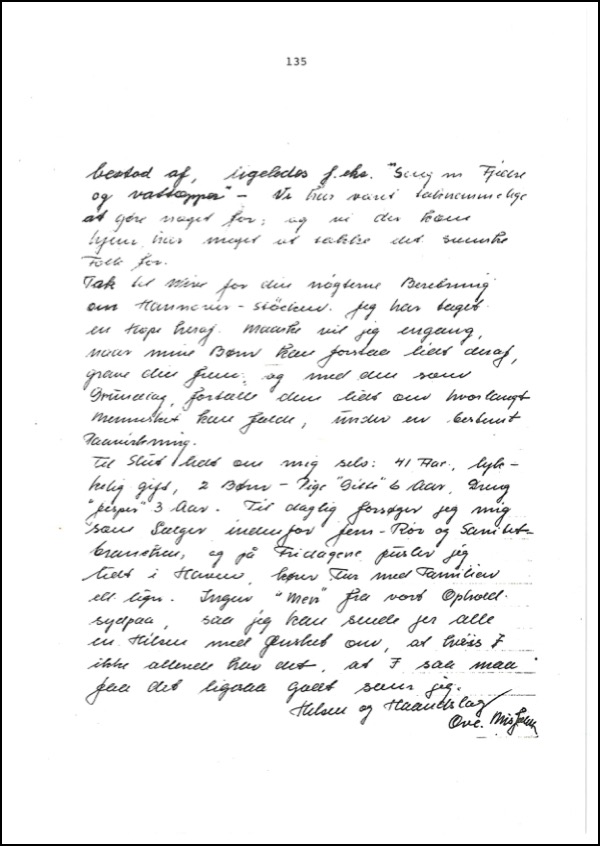 135
bestod af, ligeledes f.eks. "Seng m Fjedre
og vattæpper" – Vi har været taknemmelige
at gøre noget for; og vi der kom
hjem har meget at takke det svenske
Folk for.
Tak til for din nøgterne Beretning
om Hannover-Stöcken. Jeg har taget
en Kopi heraf. Maaske vil jeg engang,
naar mine Børn kan forstaa lidt deraf,
grave den frem, og med den som
Grundlag, fortælle dem lidt om hvorlangt
Mennesket kan falde, under en bestemt
Paavirkning.
Til Slut lidt om mig selv: 41 Aar, lyk-
kelig gift, 2 Børn – Pige "Gitte" 6 Aar, Dreng
"Jesper" 3 Aar. Til daglig forsøger jeg mig
som Sælger indenfor Jern-Rør og Sanitets-
branchen, og på Fridagene pusler jeg
lidt i Haven, kører Tur med Familien
ell lign. Ingen "Men" fra vort Ophold
sydpaa, saa jeg kan sende jer alle
en Hilsen med Ønsket om, at hvis I
ikke allerede har det, at I saa maa
faa det ligesaa godt som jeg.
Hilsen og Haandslag
Ove.